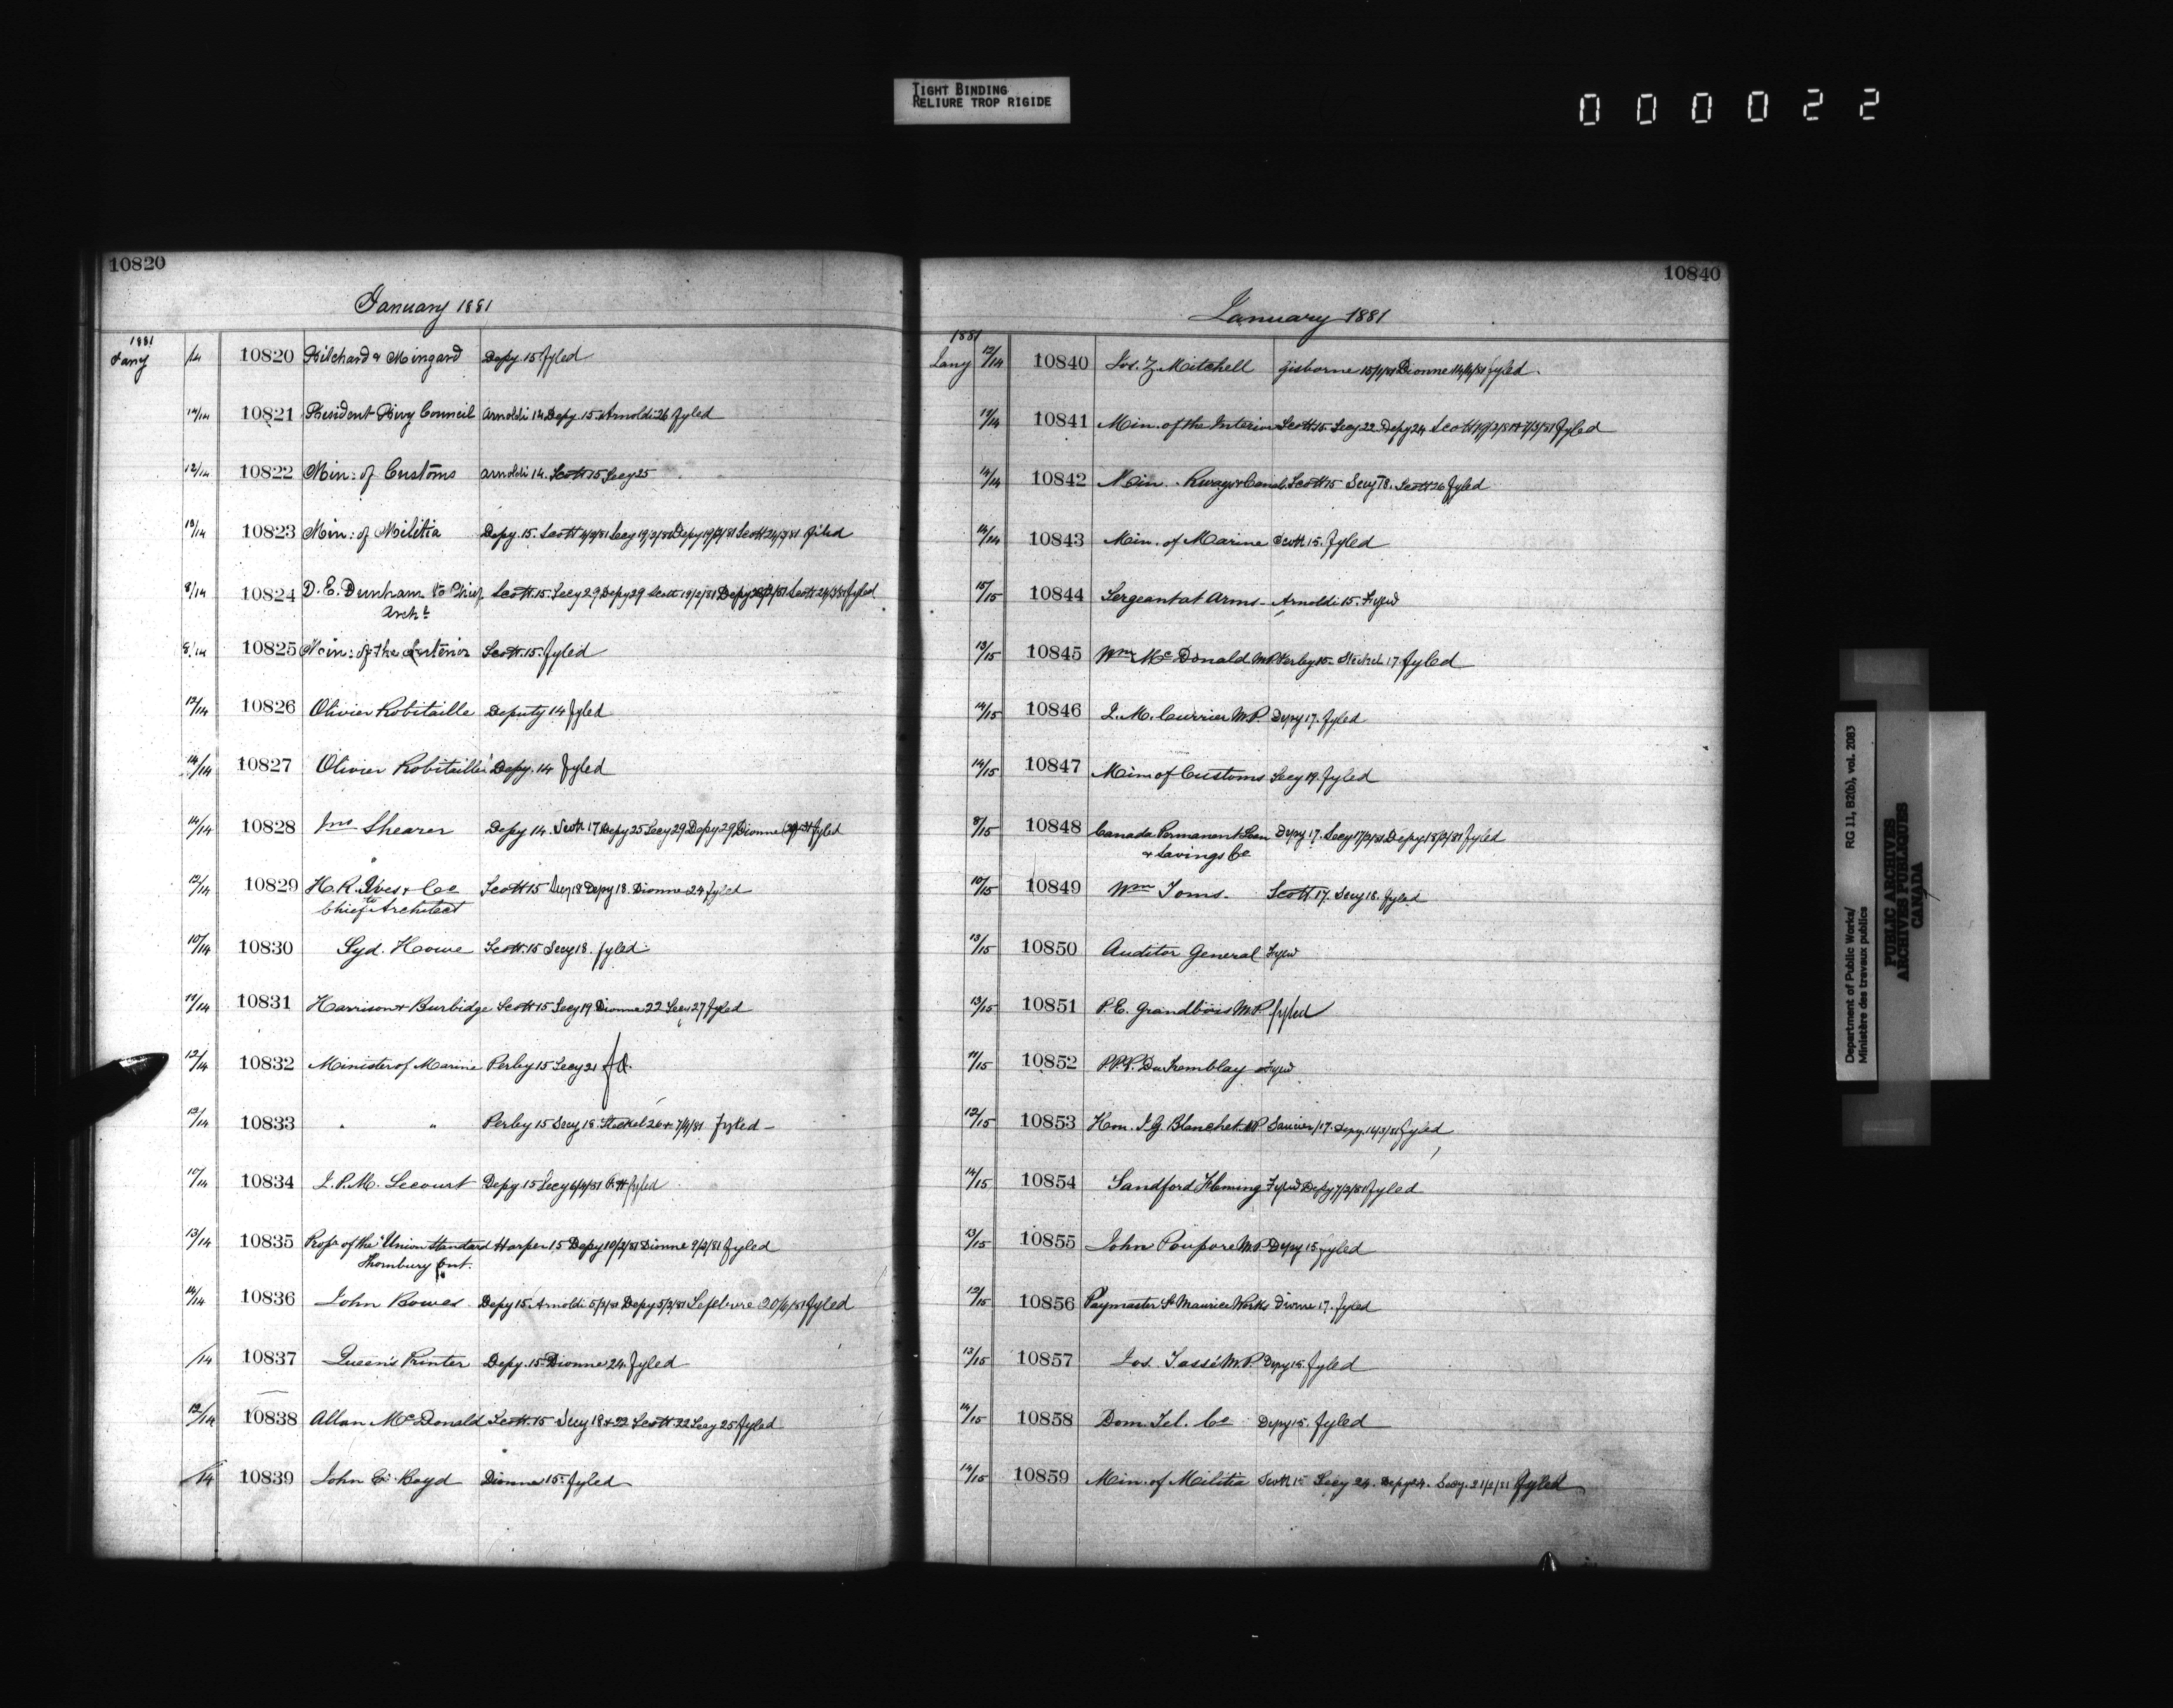 TIGHT BINDING
RELIURE TROP RIGIDE
000022
10820
January 1881
1881
Jany /14 10820 Pilchard & Mingard Depy. 15 fyled
14/14 10821 President Privy Council Arnoldi 14 Depy. 15 Arnoldi 26 fyled
12/14 10822 Min: of Customs Arnoldi 14. Scott 15 Secy 25
13/14 10823 Min: of Militia Depy. 15. Scott 4/2/81 Secy 19/2/81 Depy 19/2/81 Scott 24/2/81 filed
8/14 10824 D. E. Dunham to Chief Scott. 15. Secy 29 Depy 29 Scott 19/2/81 Depy Scott fyled
Archt
8/14 10825 Min: of the Interior Scott. 15. fyled
12/14 10826 Olivier Robitaille Deputy 14 fyled
14/14 10827 Olivier Robitaille Depy. 14 fyled
14/14 10828 Jno Shearer Depy 14. Scott 17 Depy 25 Secy 29 Depy 29 Dionne fyled
12/14 10829 H. R. Ives & Co Scott 15 Secy 18 Depy 18. Dionne 24 fyled
to Chief Architect
10/14 10830 Syd. Howe Scott. 15 Secy 18. fyled
11/14 10831 Harrison & Burbidge Scott 15 Secy 19 Dionne 22 Secy 27 fyled
12/14 10832 Minister of Marine Perley 15 Secy 21 fd.
13/14 10833 " " Perley 15 Secy 18. Steckel 26 & 7/4/81 fyled
10/14 10834 J. P. M. Lecourt Depy 15 Secy 6/4/81 fyled
13/14 10835 Propr of the "Union Standard Harper 15 Depy 10/2/81 Dionne 9/2/81 fyled
Thornbury Ont.
14/14 10836 John Bowes Depy 15. Arnoldi 5/2/81 Depy 5/2/81 Lefebvre 20/6/81 fyled
/14 10837 Queen's Printer Depy. 15 Dionne 24. fyled
12/14 10838 Allan McDonald Scott. 15 Secy 18 & 22 Scott 22 Secy 25 fyled
/14 10839 John C. Boyd Dionne 15. fyled
10840
January 1881
1881
Jany 12/14 10840 Jos. Z. Mitchell Gisborne 15/1/81 Dionne 14/4/81 fyled.
12/14 10841 Min. of the Interior Scott 15. Secy 22 Depy 24 Scott fyled
14/14 10842 Min. Rways & Canals. Scott 15 Secy 18. Scott 26 fyled
14/14 10843 Min. of Marine Scott 15. fyled
15/15 10844 Sergeant at Arms Arnoldi 15. Fyled
13/15 10845 Wm McDonald M.P. Perley 15. Steckel 17 fyled
14/15 10846 J. M. Currier M.P. Depy 17. fyled
14/15 10847 Min of Customs Secy 19. fyled
8/15 10848 Canada Permanent Loan Depy 17. Secy 17/2/81 Depy 18/2/81 fyled
& Savings Co
10/15 10849 Wm Toms. Scott. 17. Secy 18. fyled
13/15 10850 Auditor General Fyled
13/15 10851 P. E. Grandbois M.P. fyled
11/15 10852 P.P.V. DuTremblay Fyled
12/15 10853 Hon. J. G. Blanchet M.P. Saucier/17. Depy. 14/3/81 fyled
14/15 10854 Sandford Fleming Fyled Depy 7/2/81 fyled
13/15 10855 John Poupore M.P. Depy 15 fyled
12/15 10856 Paymaster St Maurice Works Dionne 17. fyled
13/15 10857 Jos. Tassé M.P. Depy 15. fyled
14/15 10858 Dom. Tel. Co Depy 15. fyled
14/15 10859 Min. of Militia Scott 15 Secy 24. Depy 24. Secy. fyled
Department of Public Works/ RG 11, B2(b), vol. 2083
Ministère des travaux publics
PUBLIC ARCHIVES
ARCHIVES PUBLIQUES
CANADA